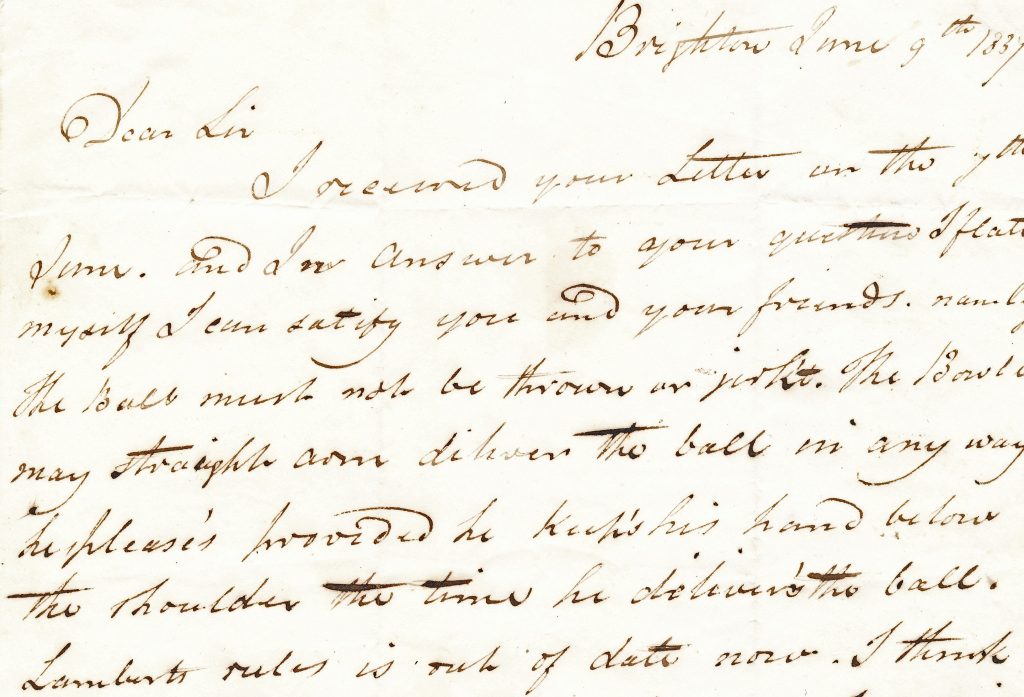 Brighton June 9th 1837
Dear Sir
I received your Letter on the 7th
June. and In Answer to your questions I flatt
myself I can satify you and your friends. namly
the Ball must not be thrown or jirkt. The Bowle
may straight arm deliver the ball in any way
he please's provided he Keep's his hand below
the shoulder the time he deliver's the ball.
Lamberts rules is out of date now. I think